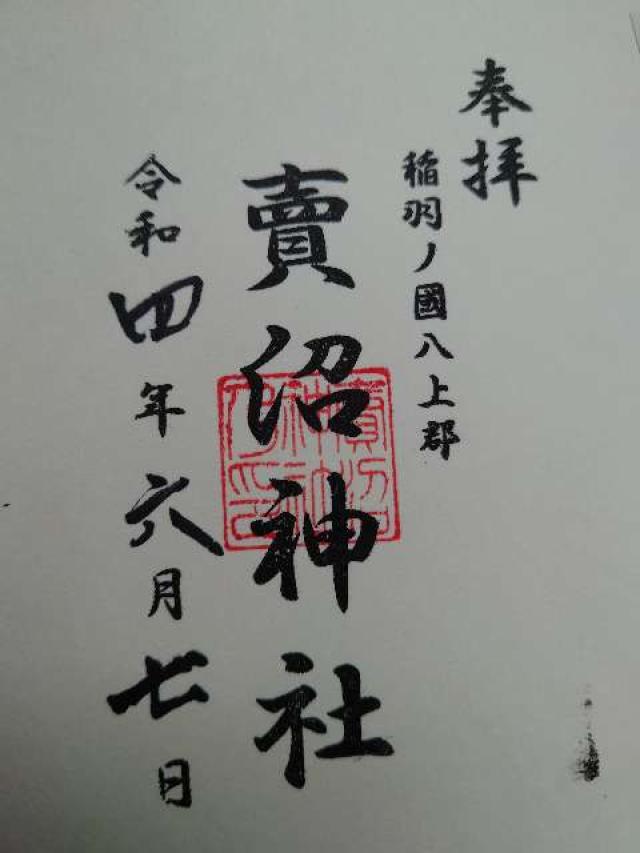 奉拝
稲羽ノ國八上郡
賣沼神社
賣沼
神社
令和四年六月七日